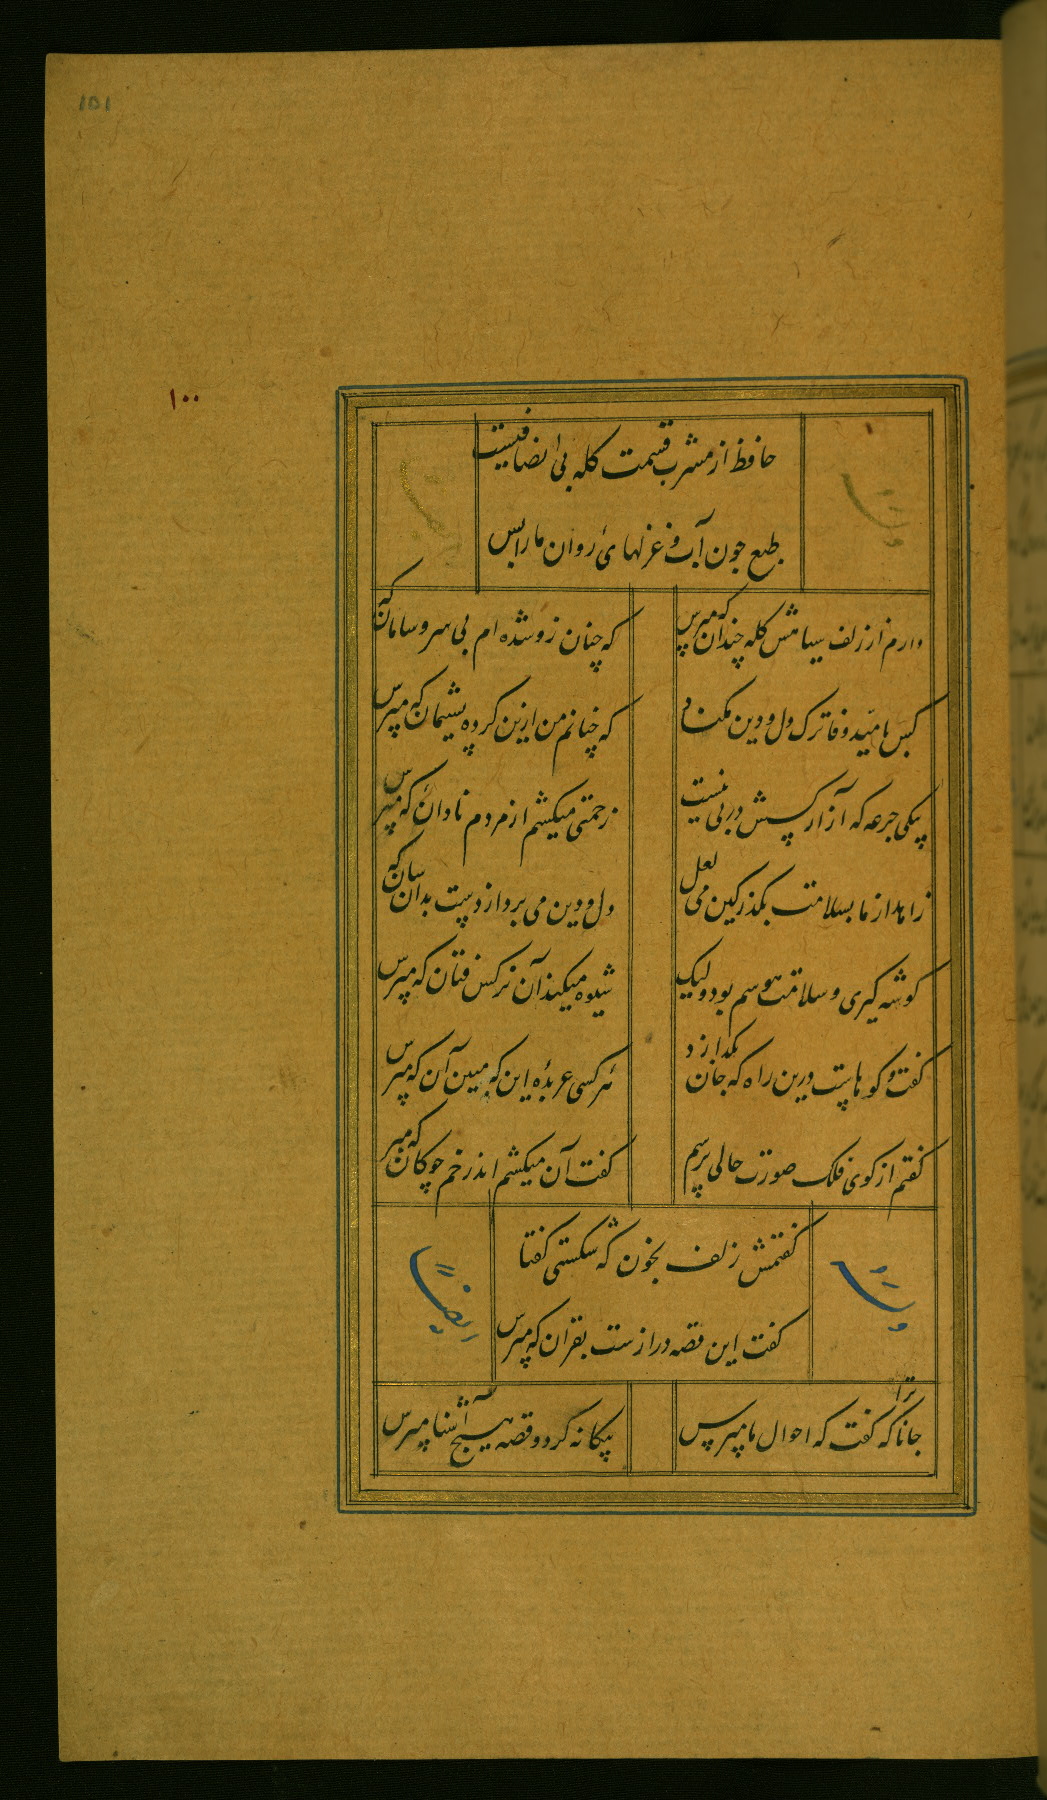 ١٥١
١٠٠
حافظ از مشرب قسمت کله بی انصافیست
طبع چون آب و غزلهای روان ما را بس
وله
دارم از زلف سیاهش کله چندان که مپرس
که چنان زو شده ام بی سر و سامان که
کس بامید وفا ترک دل و دین مکناد
که چنانم من ازین کرده پشیمان که مپرس
بیکی جرعه که آزار کسش در پی نیست
زحمتی میکشم از مردم نادان که مپرس
زاهد از ما بسلامت بکذر کین می لعل
دل و دین می برد از دست بدان سان که
کوشه کیری و سلامت هوسم بود ولیک
شیوه میکند آن نرکس فتان که مپرس
کفت و کوهاست درین راه که جان بکدازد
هر کسی عربده این که مبین آن که مپرس
کفتم از کوی فلک صورت حالی پرسم
کفت آن میکشم اندر خم چوکان که مپر
کفتمش زلف بخون که شکستی کفتا
کفت این قصه درازست بقران که مپرس
وله
ایضا
جانا ترا که کفت که احوال ما مپرس
بیکانه کرد و قصه هیچ آشنا مپرس